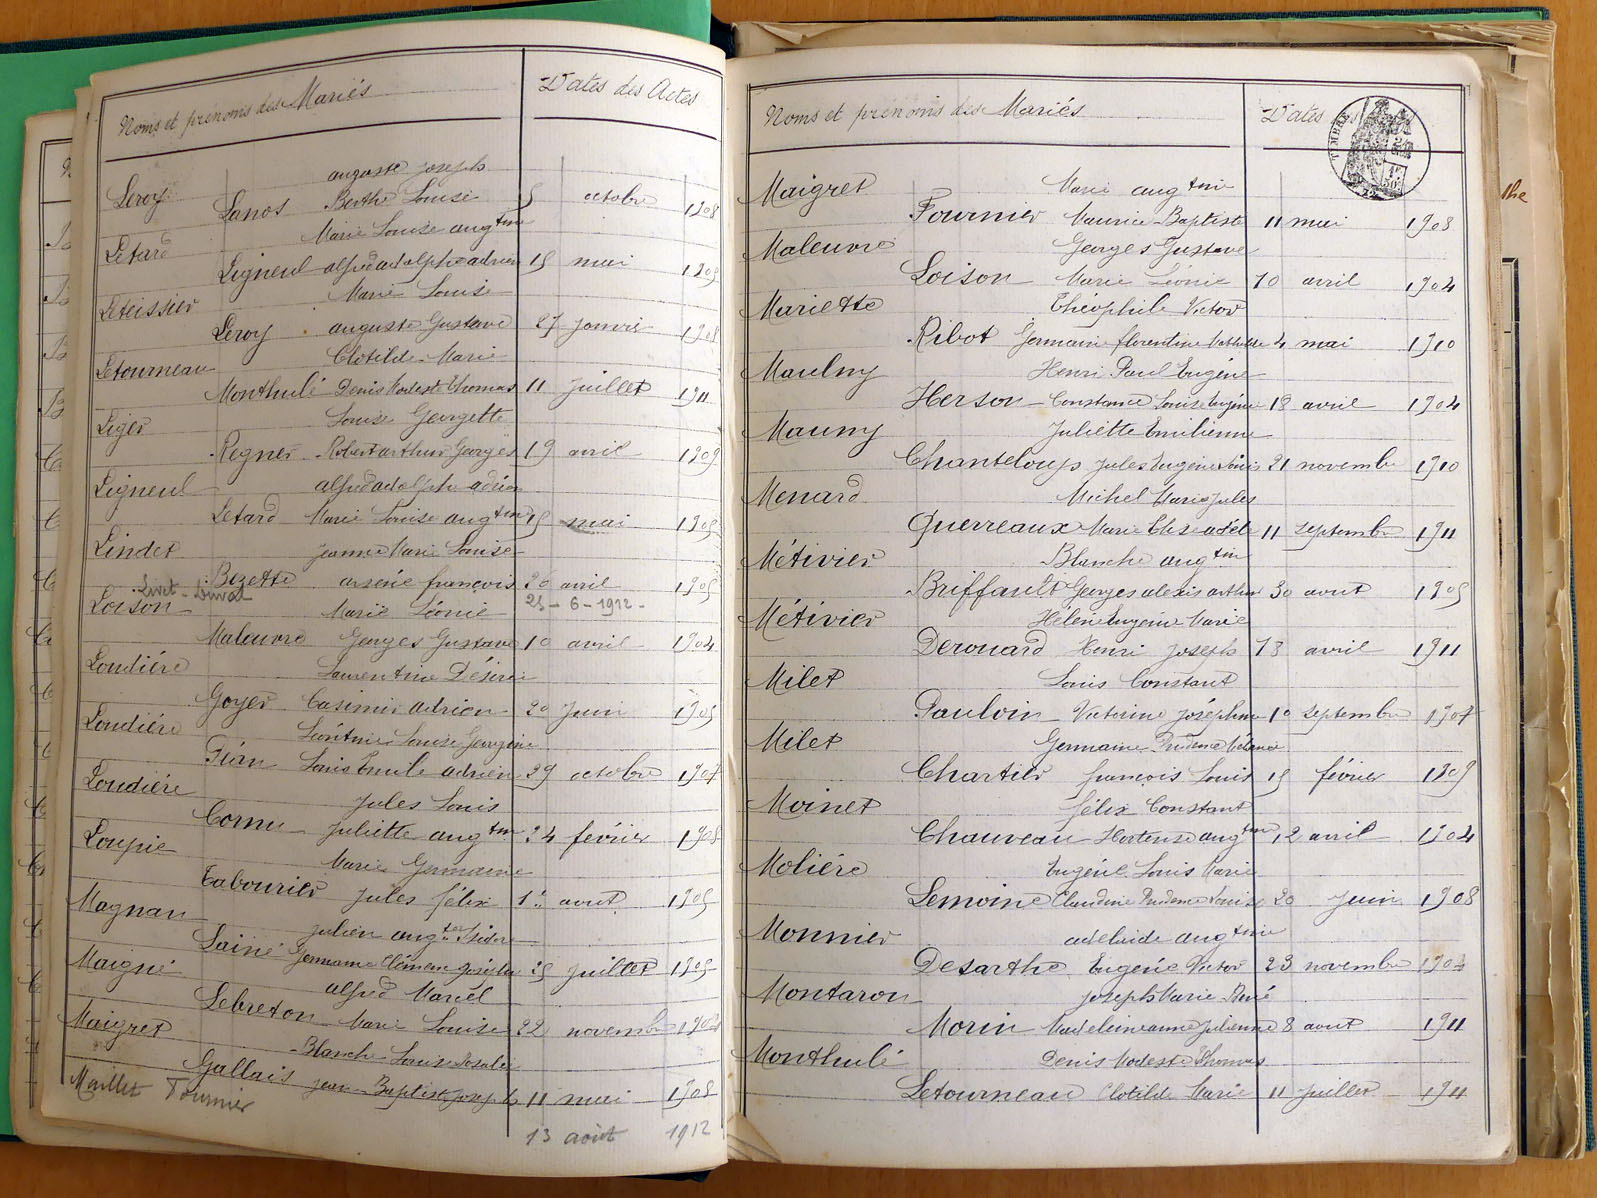 Noms et prénoms des Mariés Dates des Actes
Leroy auguste joseph
Lanos Berthe Louise 5 octobre 1908
Letard Marie Louise augtine
Ligneul alfred adolphe adrien 15 mai 1905
Leteissier Marie Louise
Leroy auguste Gustave 27 janvier 1908
Letourneau Clotilde Marie
Monthulé Denis Modeste Thomas 11 juillet 1911
Liger Louise Georgette
Regner Robert arthur Georges 19 avril 1909
Ligneul alfred adolphe adrien
Letard Marie Louise augtine 15 mai 1905
Lindet jeanne Marie Louise
Bezette arsène françois 26 avril 1905
Livet - Duval 25-6-1912-
Loison Marie Léonie
Maleuvre Georges Gustave 10 avril 1904
Loudière Laurentine Désirée
Goyer Casimir adrien 20 juin 1905
Loudière Léontine Louise Georgine
Louis Emile adrien 29 octobre 1907
Loudière Jules Louis
Cornu Juliette augtine 24 février 1908
Loupie Marie Germaine
Tabourier jules félix 1er aout 1905
Magnan julien augte Isidore
Lainé Germaine Clémence joséphine 25 juillet 1905
Maigné alfred Marcel
Lebreton Marie Louise 22 novembre
Maigret Blanche Louise Rosalie
Gallais jean-Baptiste joseph 11 mai 1908
Maillet Fournier 13 août 1912
Noms et prénoms des Mariés Dates
TIMBRE
Maigret Marie augtine
Fournier Maurice-Baptiste 11 mai 1908
Maleuvre Georges Gustave
Loison Marie Léonie 10 avril 1904
Mariette Théophile Victor
Ribot Germaine florentine Mathilde 4 mai 1910
Maulny Henri Paul Eugène
Herson Constance Louise Eugénie 18 avril 1904
Mauny Juliette Emilienne
Chanteloup Jules Eugène Louis 21 novembre 1910
Menard Michel Marie Jules
Guerreaux Marie Elise adèle 11 septembre 1911
Métivier Blanche augtine
Briffault Georges alexis arthur 30 aout 1905
Métivier Hélène Eugénie Marie
Derouard Henri Joseph 13 avril 1911
Milet Louis Constant
Pauloin Victorine Joséphine 10 septembre 1907
Milet Germaine Prudence Mélanie
Chartier françois Louis 15 février 1909
Moinet félix Constant
Chauveau Hortense augtine 12 avril 1904
Molière Eugène Louis Marie
Lemoine Claudine Prudence Louise 20 juin 1908
Monnier adelaide augtine
Desarthe Eugène Victor 23 novembre
Montaron joseph Marie René
Morin Madeleine anne julienne 8 aout 1911
Monthulé Denis Modeste Thomas
Letourneau Clotilde Marie 11 juillet 1911